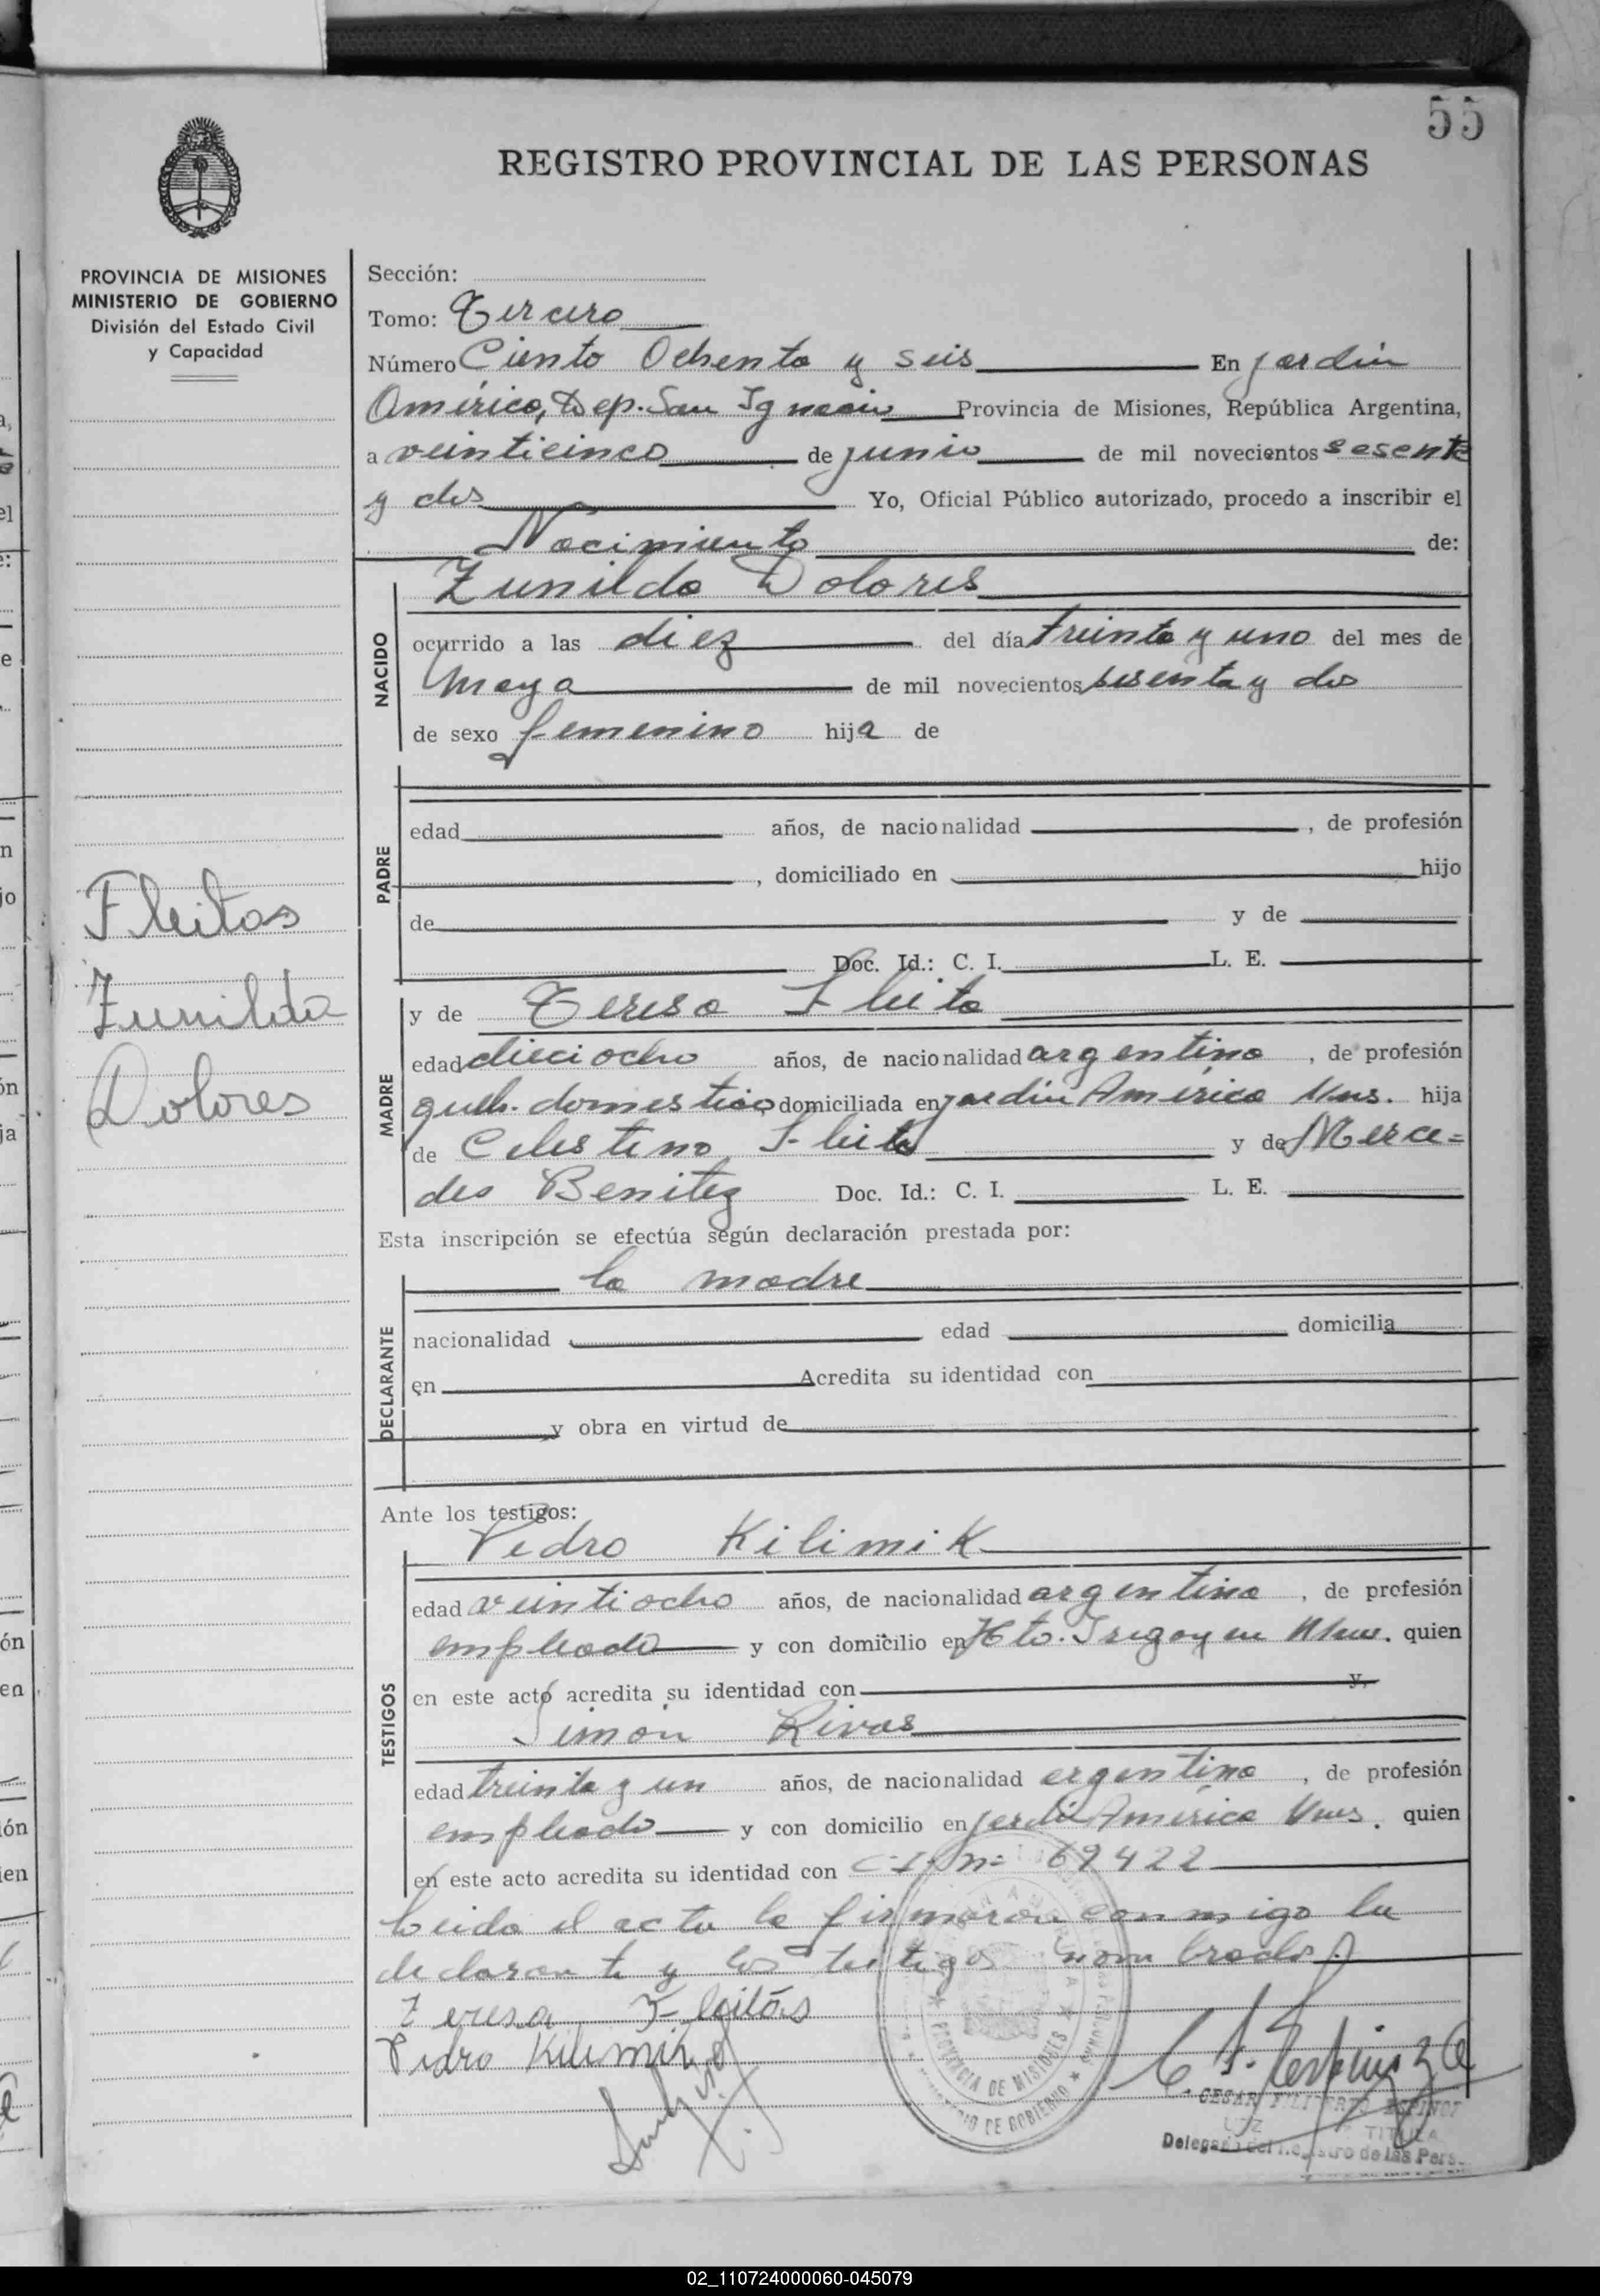 55
REGISTRO PROVINCIAL DE LAS PERSONAS
PROVINCIA DE MISIONES
MINISTERIO DE GOBIERNO
División del Estado Civil
y Capacidad
Fleitas
Zunilda
Dolores
Sección:
Tomo: Tercero
Número Ciento Ochenta y seis En Jardin
America, Dep. San Ignacio Provincia de Misiones, República Argentina,
a veinticinco de junio de mil novecientos sesenta
y dos Yo, Oficial Público autorizado, procedo a inscribir el
Nacimiento de:
NACIDO
Zunilda Dolores
ocurrido a las diez del día treinta y uno del mes de
Mayo de mil novecientos sesenta y dos
de sexo femenino hija de
PADRE
edad años, de nacionalidad , de profesión
, domiciliado en hijo
de y de
Doc. Id.: C. I. L. E.
MADRE
y de Teresa Fleita
edad dieciocho años, de nacionalidad argentina , de profesión
queh. domestico domiciliada en Jardin América Mnes. hija
de Celestino Fleita y de Merce=
des Benitez Doc. Id.: C. I. L. E.
Esta inscripción se efectúa según declaración prestada por:
DECLARANTE
la madre
nacionalidad edad domicilia
en Acredita su identidad con
y obra en virtud de
Ante los testigos:
TESTIGOS
Pedro Kilimik
edad veintiocho años, de nacionalidad argentina , de profesión
empleado y con domicilio en Hto. Irigoyen Mnes. quien
en este acto acredita su identidad con y,
Simón Rivas
edad treinta y un años, de nacionalidad argentina , de profesión
empleado y con domicilio en Jardin América Mnes. quien
en este acto acredita su identidad con C.I. n= 69422
Leida el acta la firmaron conmigo la
declarante y los testigos nombrados.
Teresa Fleitás
Pedro Kilimik
C. F. Espinoza
PROVINCIA DE MISIONES
MINISTERIO DE GOBIERNO
CESAR FILIBERTO ESPINOZ
JUEZ TITULA
Delegado del Registro de las Pers.
02_110724000060-045079